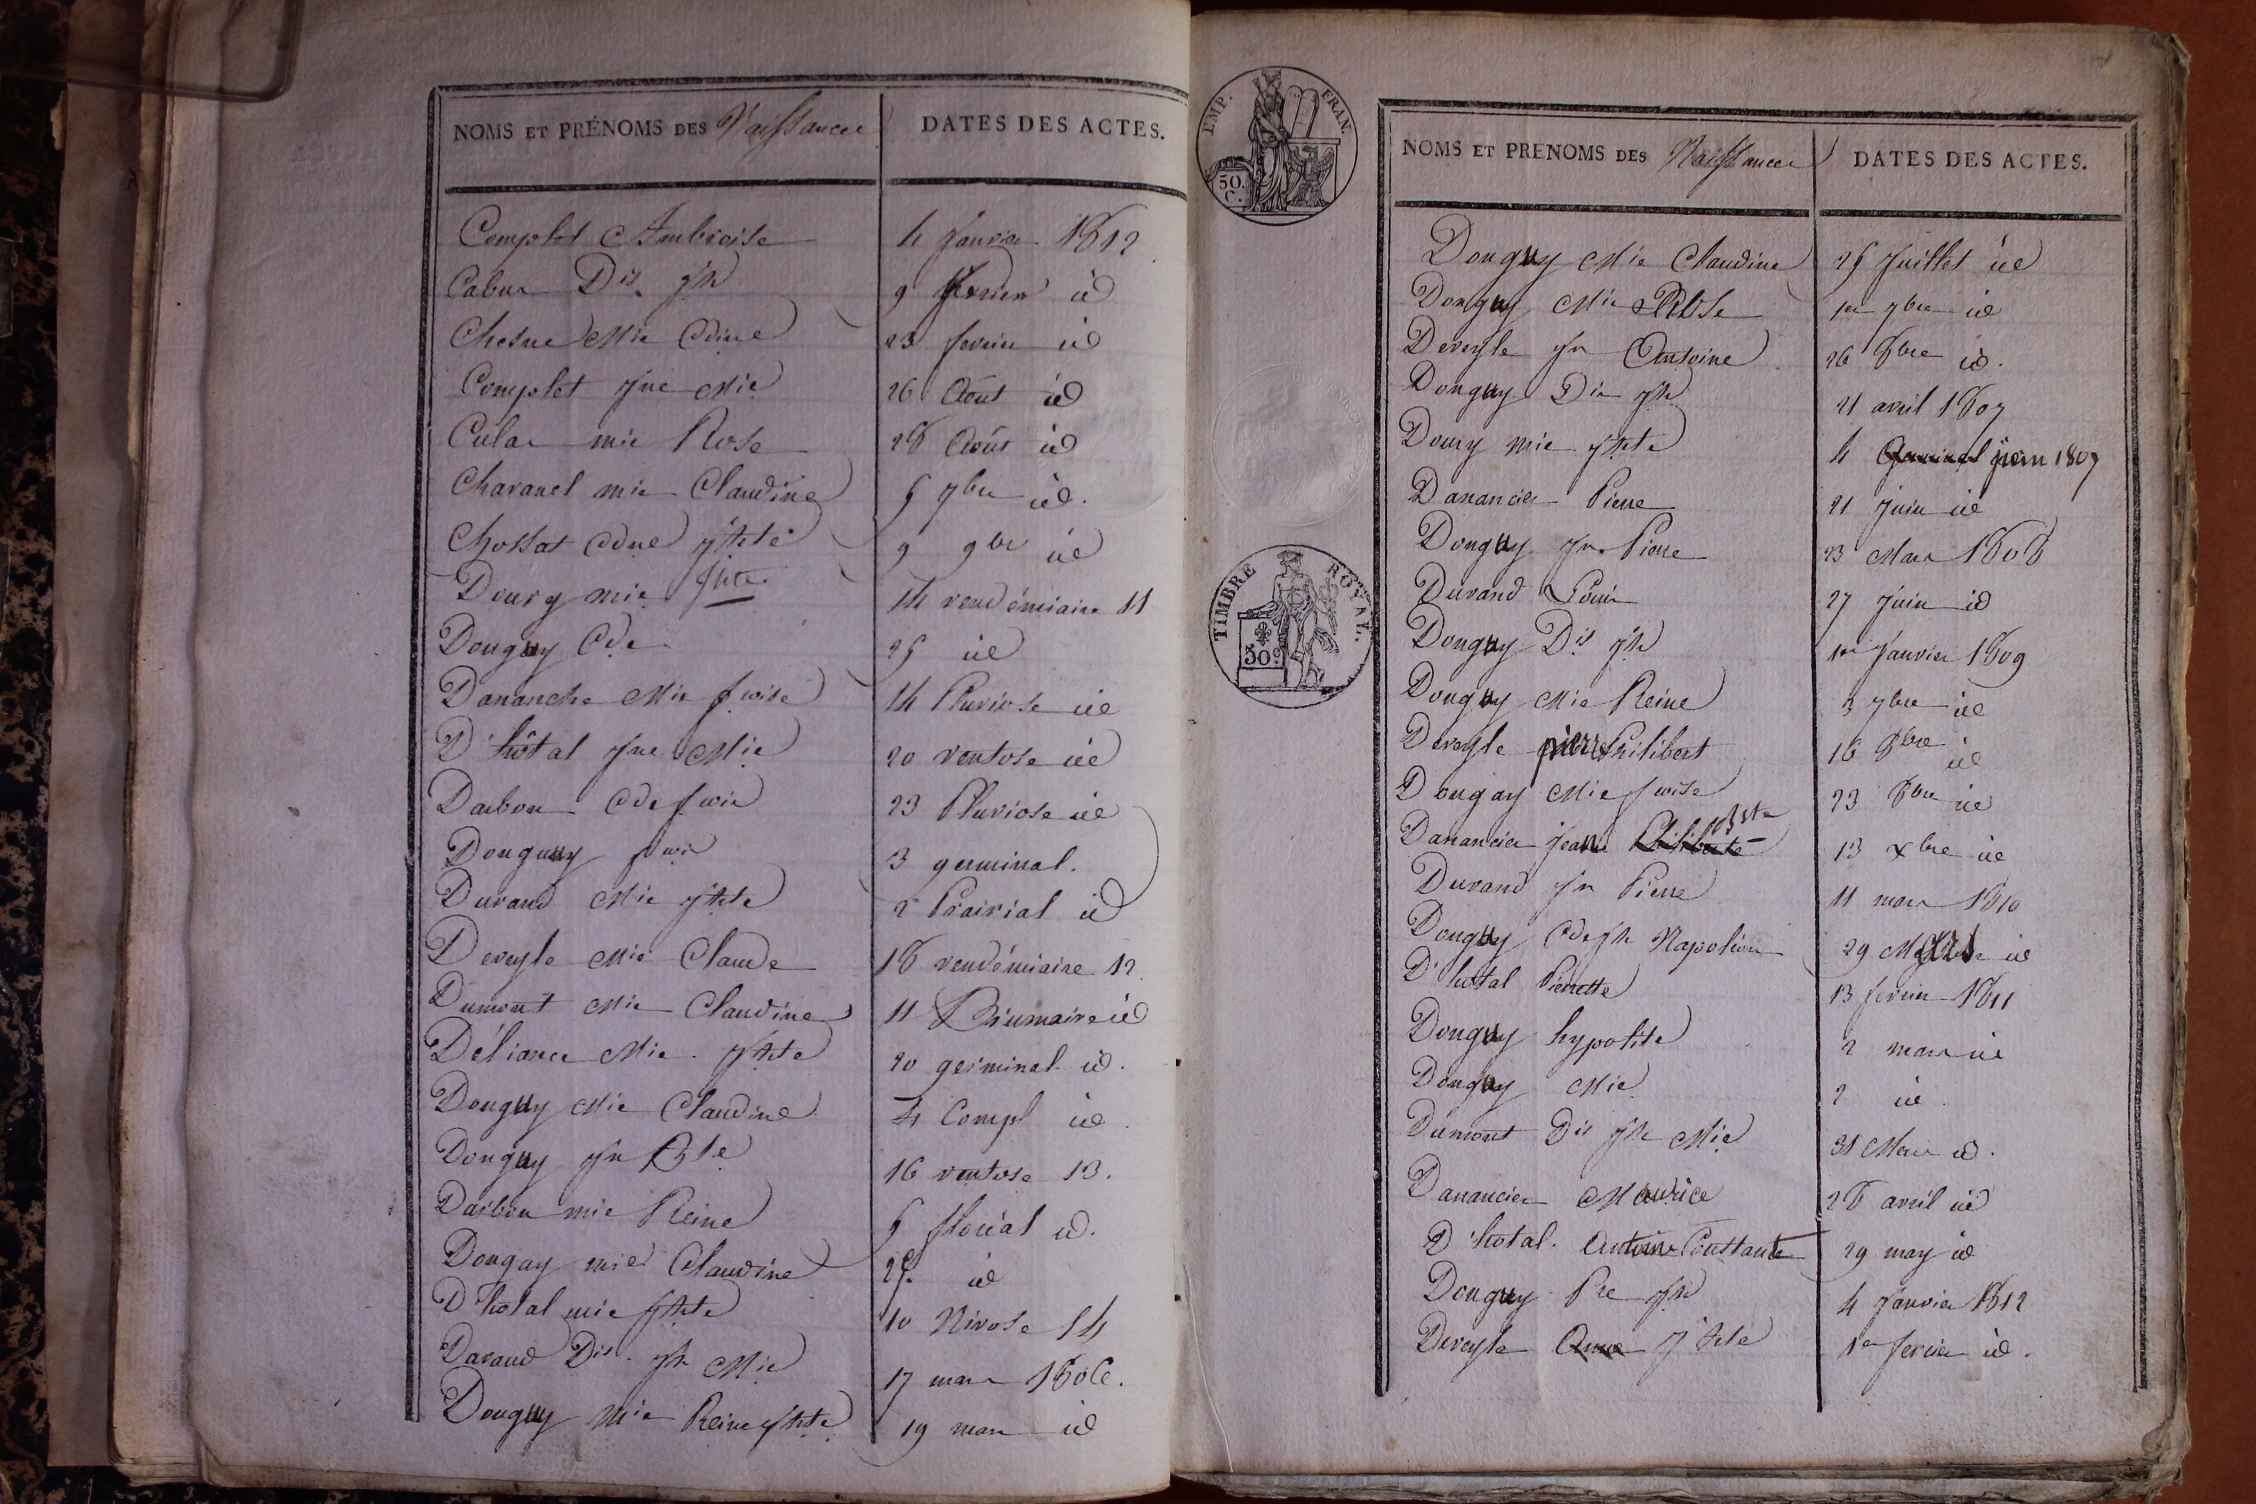 NOMS ET PRÉNOMS DES Naissances DATES DES ACTES.
Complet Ambroise 4 Janvier 1812
Cabur Dis. jh 9 fevrier id
Chesne Mie Cdine 23 fevrier id
Complet jne Mie 26 Août id
Culas mie Rose 28 Août id
Charanel mie Claudine 5 7bre id.
Chossat Cdne jhte 9 9bre id
Doury mie jhte 14 vendémiaire 11
Donguy Cde 25 id
Dananche Mie fcoise 14 Pluviose id
D'hôtal jne Mie 20 ventose id
Darbon Cde fcois 23 Pluviose id
Donguy fcois 3 germinal.
Durand Mie jhte 2 Prairial id
Devesle Mie Claude 18 vendémiaire 12
Dumont Mie Claudine 11 Brumaire id
Déliance Mie. jhte 20 germinal id.
Donguy Mie Claudine 4 Compl id
Donguy jn Bte 16 ventose 13.
Darbon mie Reine 5 floréal id.
Dongay mie Claudine 25. id
D'hotal mie jhte 10 Nivose 14
Durand Dis. jh Mie 17 mars 1806.
Donguy Mie Reine jhte 19 mars id
EMP. FRAN.
50. C.
TIMBRE ROYAL.
50c
NOMS ET PRENOMS DES Naissances DATES DES ACTES.
Donguy Mie Claudine 25 Juillet id
Donguy Mie Rose 1er 7bre id
Deveyle jn Antoine 26 8bre id.
Donguy Dis jh 21 avril 1807
Doury mie jhte 4 juin 1807
Danancier Pierre 21 Juin id
Donguy jn. Pierre 23 Mars 1808
Durand Louis 27 Juin id
Donguy Dis jh 1er Janvier 1809
Donguy Mie Reine 3 7bre id
Deveyle pierre Philibert 16 8bre id
Dongay Mie fcoise 23 8bre id
Danancier jeanne Philiberte Bste 13 xbre id
Durand jn Pierre 11 mars 1810
Donguy Cde jh Napoléon 29 Mars id
D'hotal Pierrette 13 fevrier 1811
Donguy hypolite 2 mars id
Donguy Mie 2 id
Dumont Dis jh Mie 31 Mars id.
Danancier Maurice 28 avril id
D'hotal. Antoine Constante 29 may id
Donguy Pre jh 4 Janvier 1812
Deveyle Anne jhte 1er fevrier id.